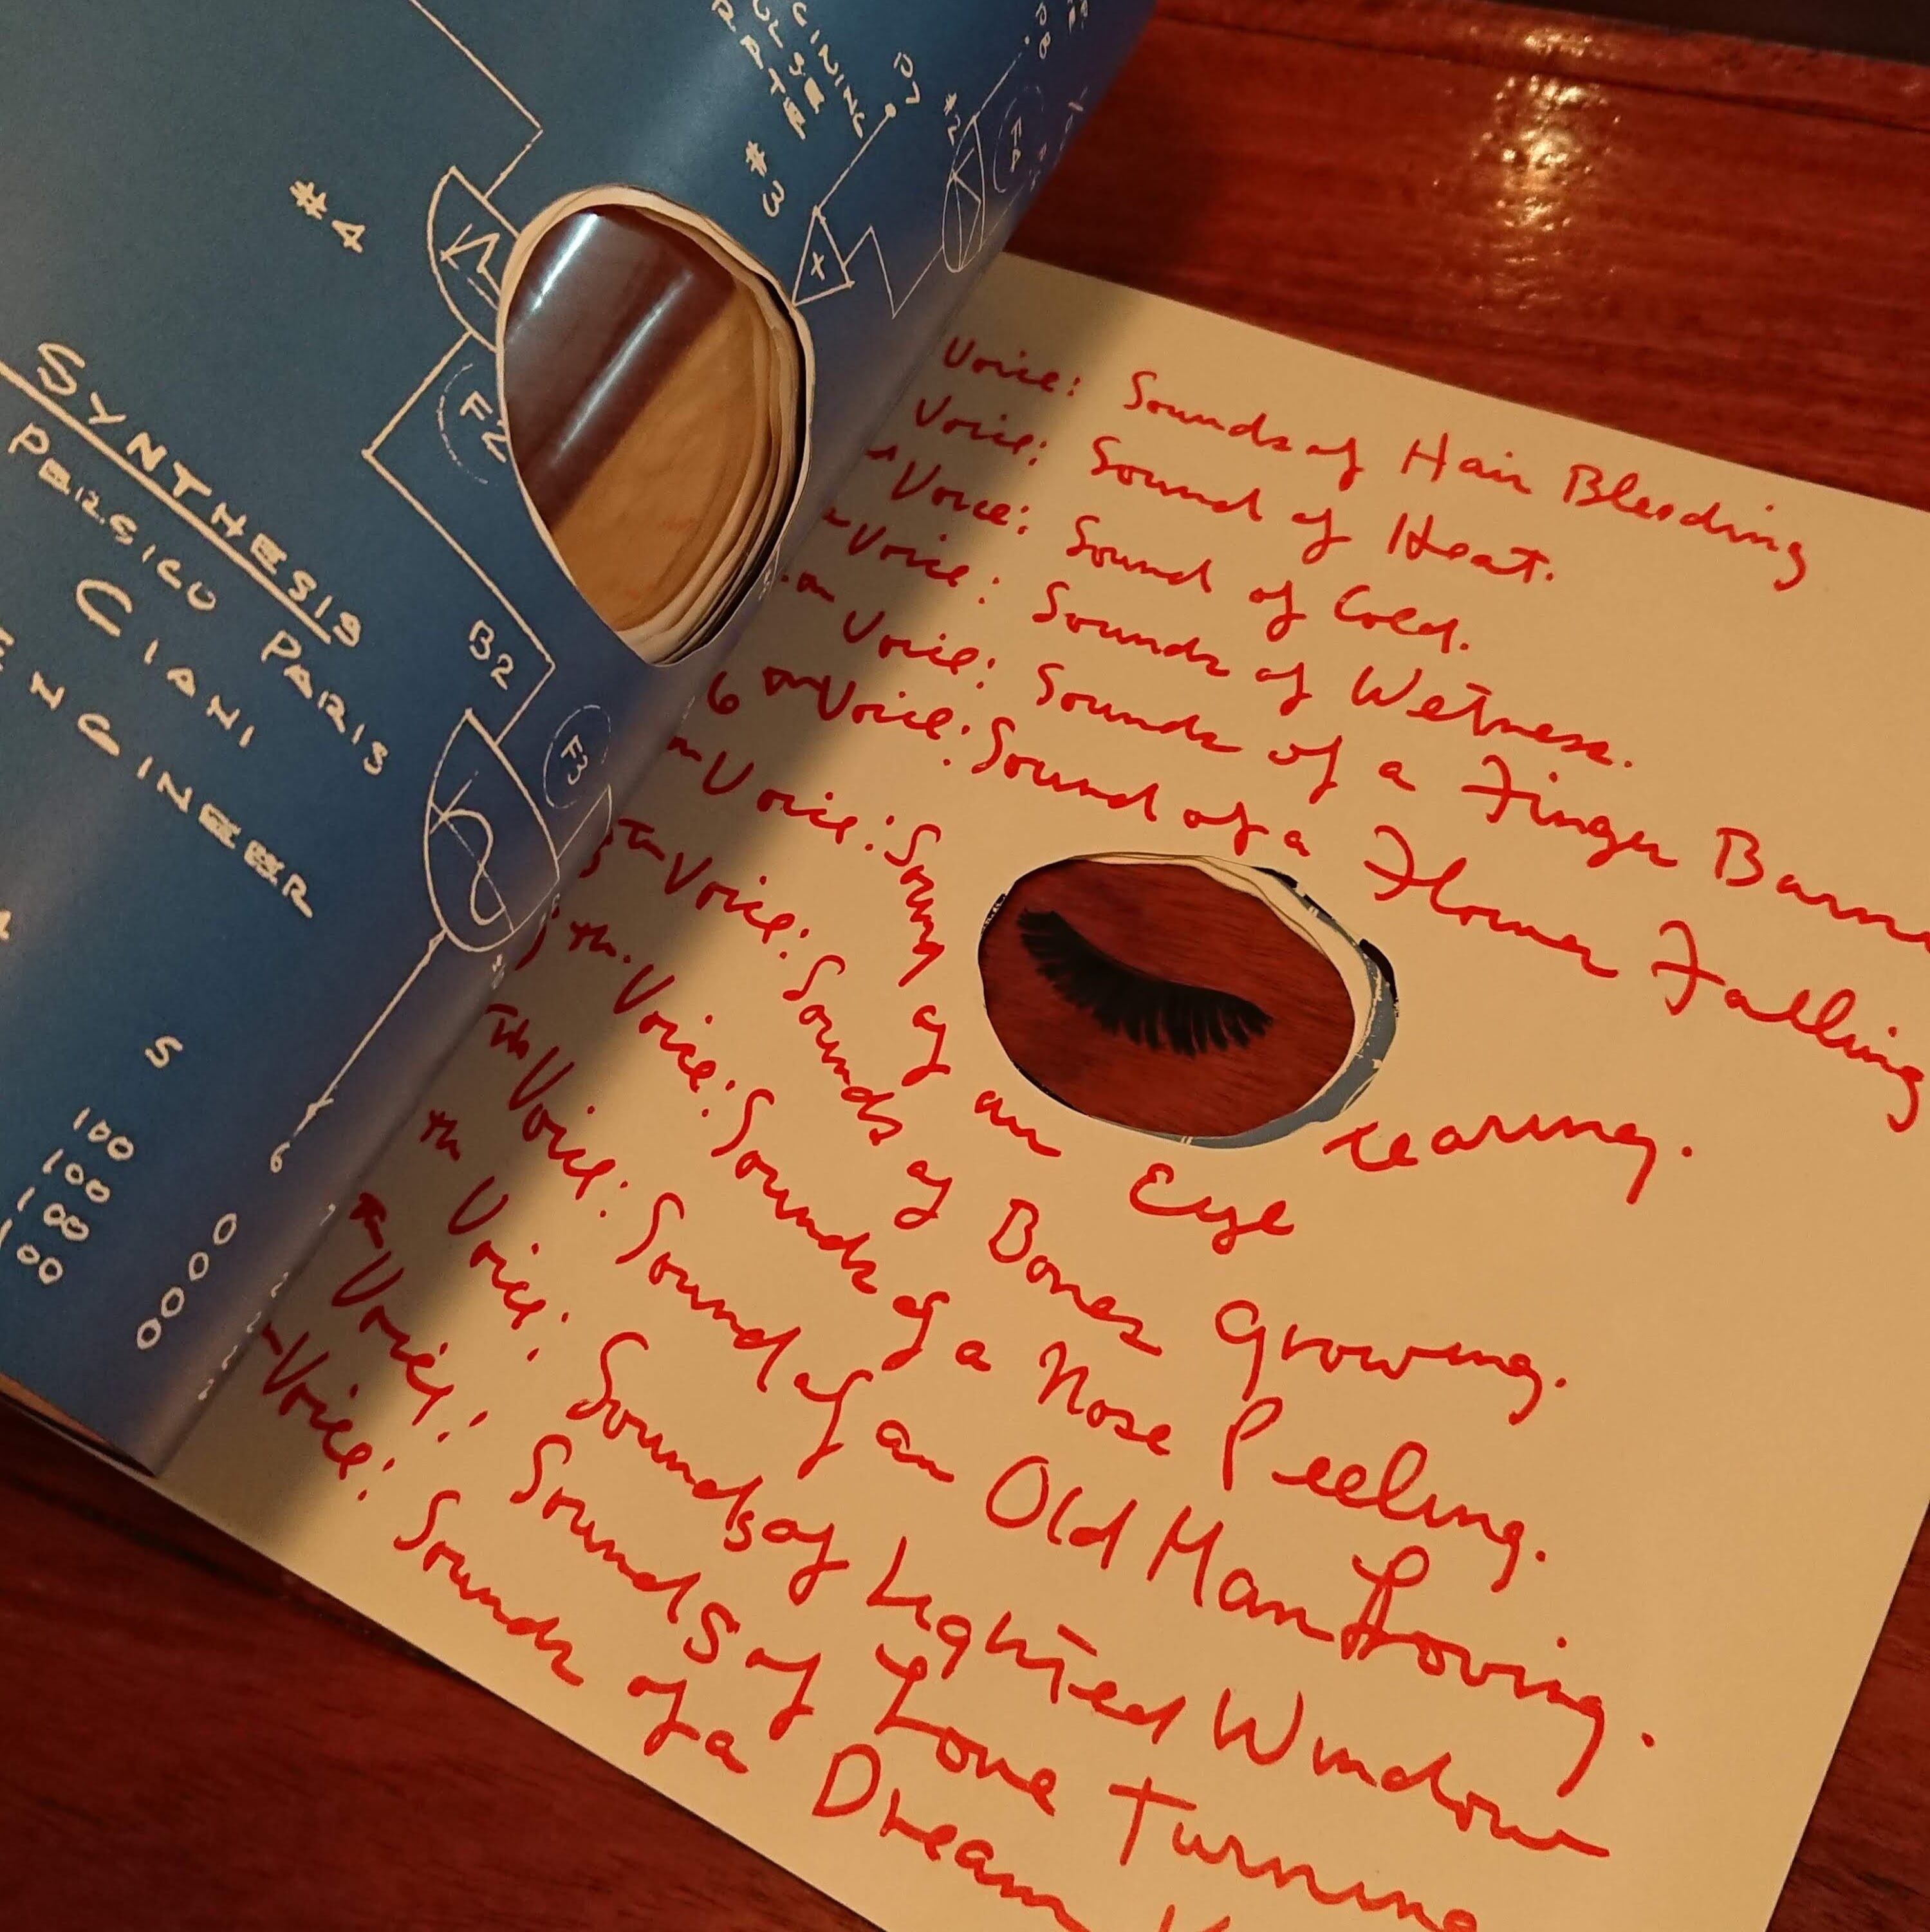 #4
#3
P7
#2
F4
F2
SYNTHESIS
PERSICO PARIS
CIANI
ENGINEER
B2
F3
6
S
100
100
100
100
0
0
0
0
Voice: Sounds of Hair Bleeding
Voice: Sound of Heat.
Voice: Sound of Cold.
Voice: Sounds of Wetness.
Voice: Sounds of a Finger
6 th Voice: Sound of a Flower Falling
Voice: Sound of an Eye tearing.
th Voice: Sounds of Bones Growing.
th. Voice: Sounds of a Nose Peeling.
th Voice: Sound of an Old Man Loving.
th Voice: Sounds of Lighted Window
th Voice: Sounds of Love Turning
Voice: Sounds of a Dream